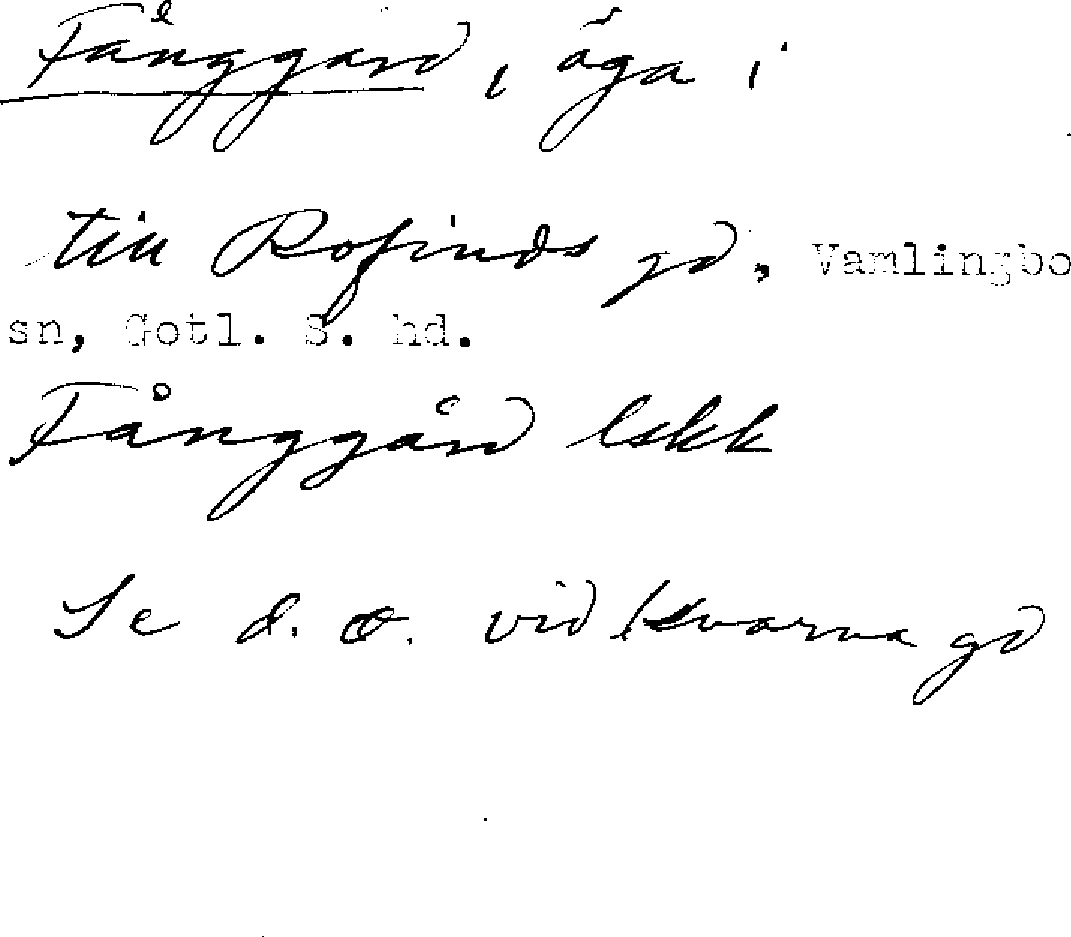 Fånggard, äga i
till Rofinds gd, Vamlingbo
sn, Gotl. S. hd.
Fånggård lskk
Se d. o. vid Kvarna gd